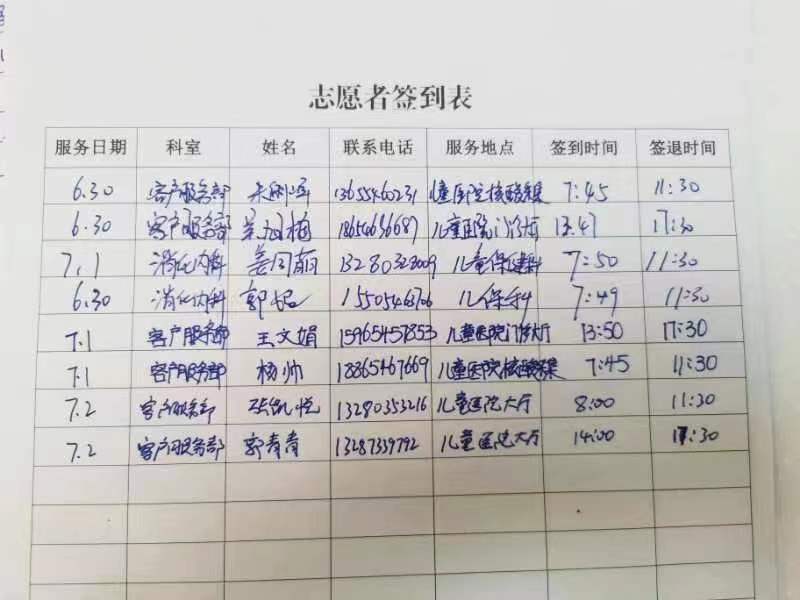 志愿者签到表
服务日期 科室 姓名 联系电话 服务地点 签到时间 签退时间
6.30 客户服务部 13655460231 儿童医院核酸采集 7:45 11:30
6.30 客户服务部 18654636687 儿童医院门诊大厅 13:47 17:30
7.1 消化内科 13280323009 儿童保健科 7:50 11:30
6.30 消化内科 郭 15505463706 儿保科 7:49 11:30
7.1 客户服务部 王文娟 15965457853 儿童医院门诊大厅 13:50 17:30
7.1 客户服务部 杨帅 18865467669 儿童医院核酸采集 7:45 11:30
7.2 客户服务部 张凯悦 13280353216 儿童医院大厅 8:00 11:30
7.2 客户服务部 郭青青 13287339792 儿童医院大厅 14:00 17:30